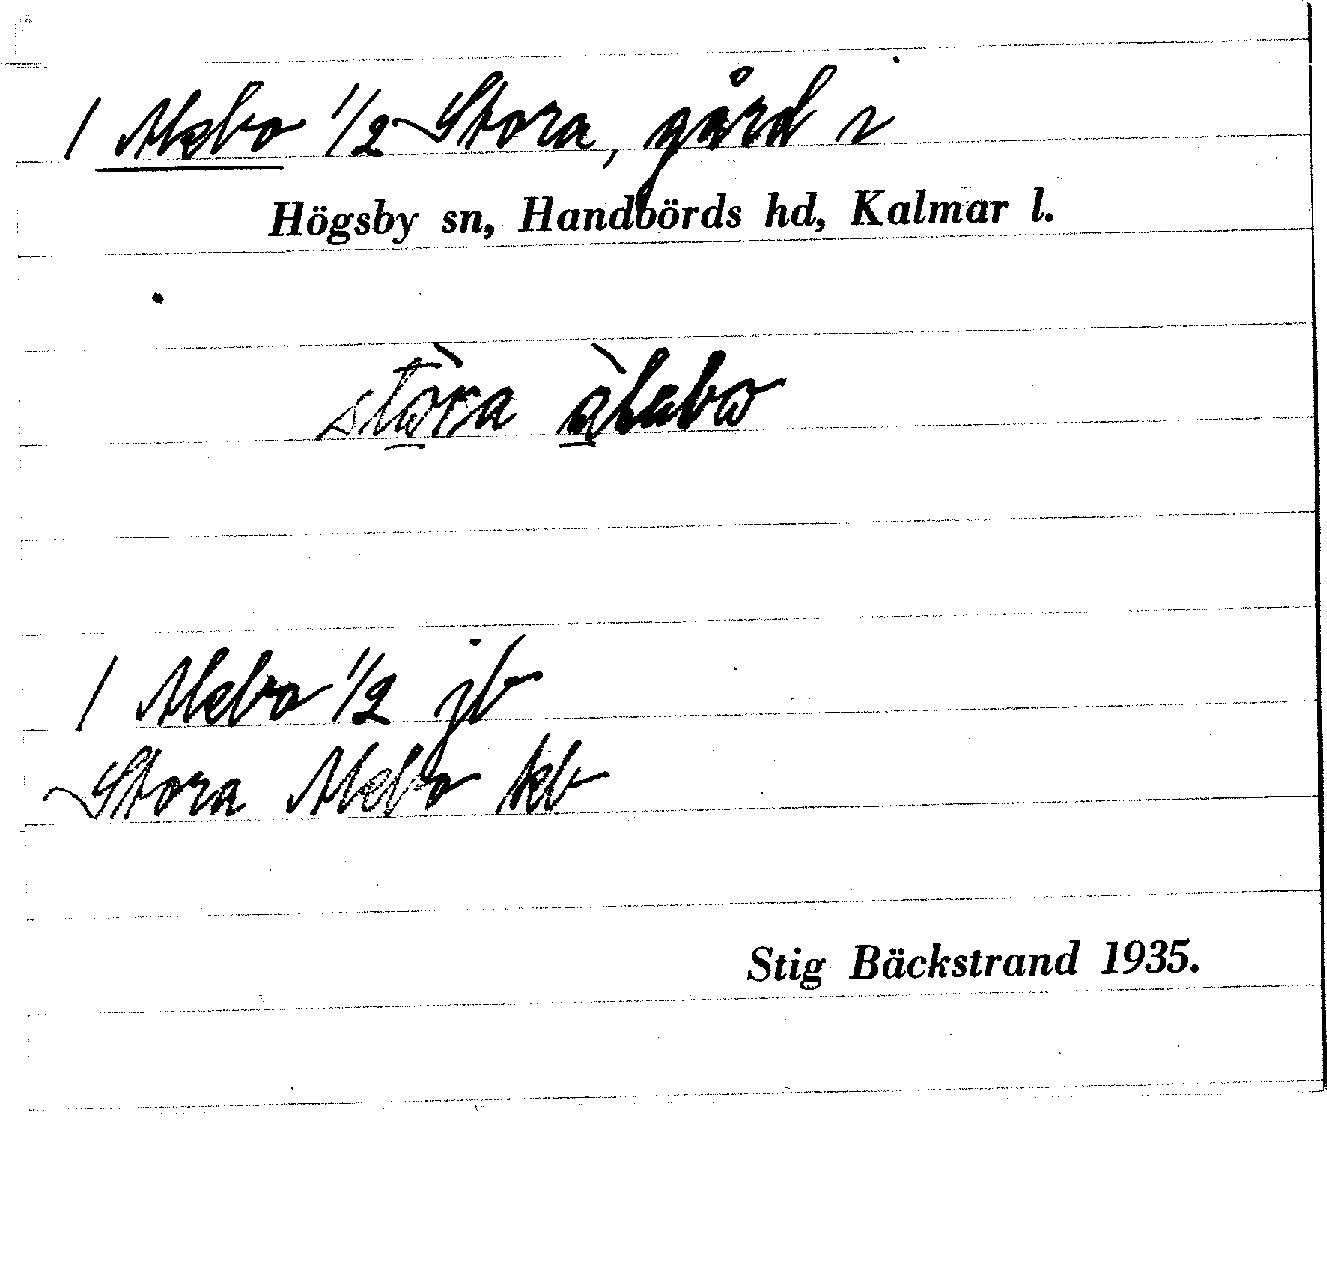 1 Alebo 1/2 Stora, gård i
Högsby sn, Handbörds hd, Kalmar l.
stòra àlebo
1 Alebo 1/2 jb
Stora Alebo kb
Stig Bäckstrand 1935.